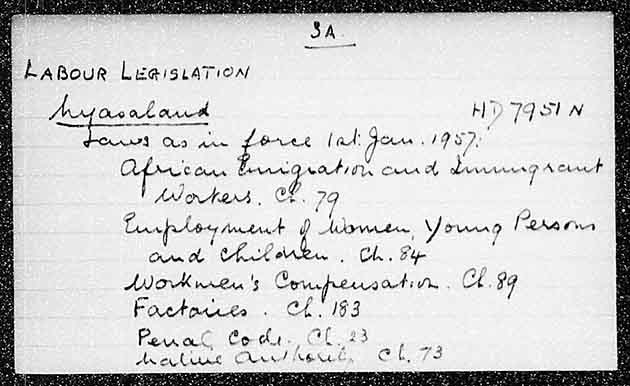 3A.
LABOUR LEGISLATION
Nyasaland HD 7951 N
Laws as in force 1st Jan. 1957:
African Emigration and Immigrant
Workers. Ch. 79
Employment of Women, Young Persons
and Children. Ch. 84
Workmen's Compensation. Ch. 89
Factories. Ch. 183
Penal Code. Ch. 23
Native Authority Ch. 73